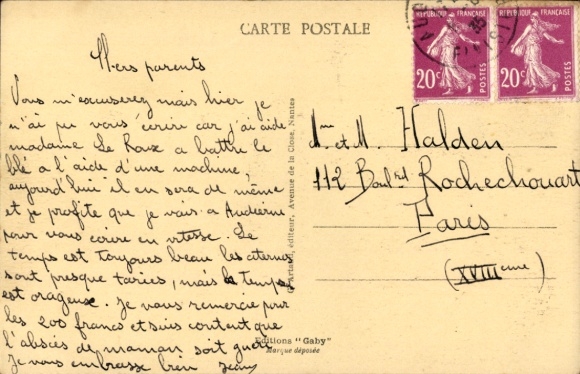 CARTE POSTALE
RÉPUBLIQUE FRANÇAISE
20c
POSTES
RÉPUBLIQUE FRANÇAISE
20c
POSTES
Chers parents
Vous m'excuserez mais hier je
n'ai pu vous écrire car j'ai aidé
madame Le Roux a battre le
blé a l'aide d'une machine,
aujourd'hui il en sera de même
et je profite que je vais a Audierne
pour vous écrire en vitesse. Le
temps est toujours beau les citernes
sont presque taries, mais le temps
est orageux. Je vous remercie pour
les 200 francs et suis content que
l'abscés de maman soit guéri
Je vous embrasse bien Jean
Artaud, éditeur, Avenue de la Close, Nantes
Editions "Gaby"
Marque déposée
Mme et M. Halden
112 Boulrd Rochechouart
Paris
(XVIIIeme)